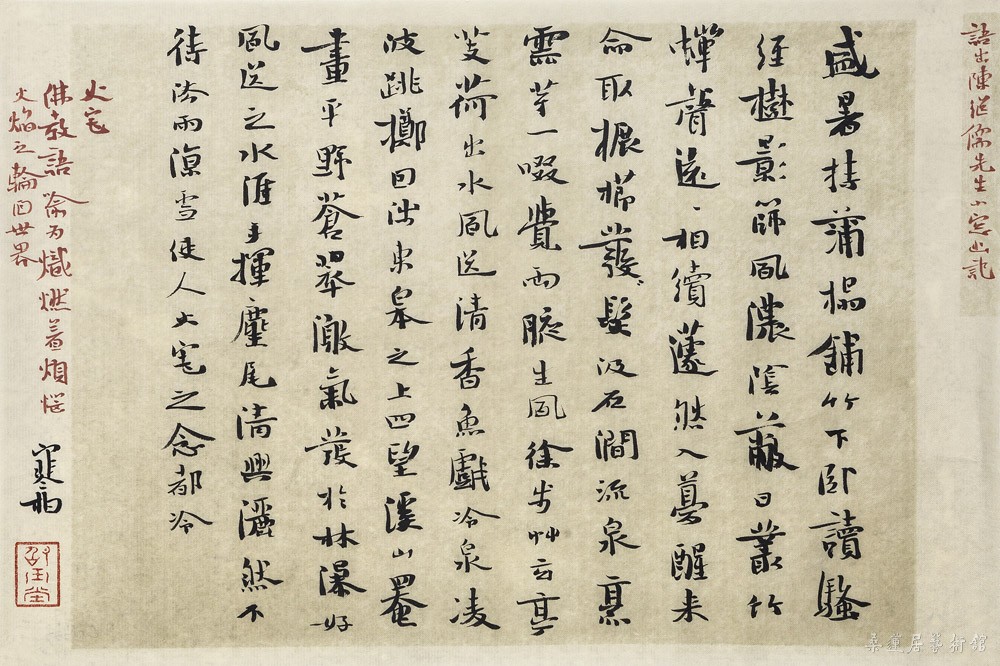 語出陳繼儒先生小窓幽記
盛暑持蒲榻鋪竹下臥讀騷
經樹影篩風濃陰蔽日叢竹
蟬聲遠遠相續蘧然入夢醒來
命取榐櫛發髮汲石澗流泉烹
雲芽一啜覺兩腋生風徐步艸玄亭
芰荷出水風送清香魚戲冷泉凌
波跳擲因涉東皋之上四望溪山罨
畫平野蒼翠激氣發於林瀑好
風送之水涯手揮麈尾清興灑然不
待法雨涼雪使人火宅之念都冷
火宅
佛教語喻為熾燃着煩惱
火焰之輪回世界
桑蓮居藝術館